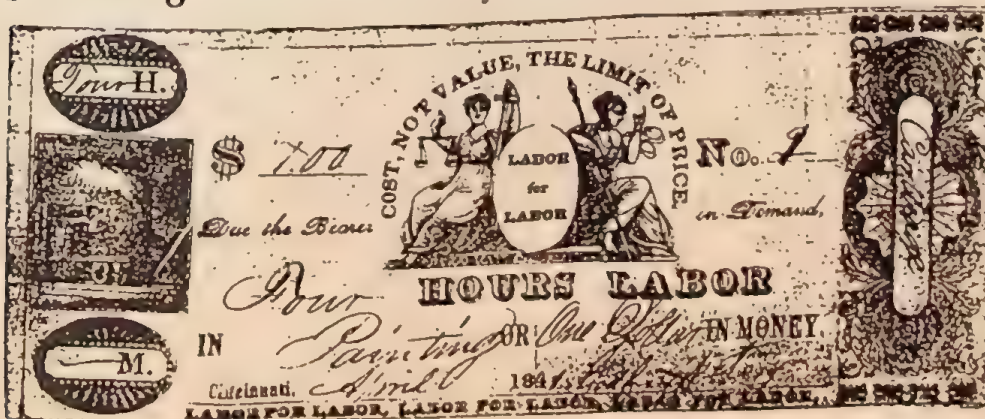 Four H.
COST, NOT VALUE, THE LIMIT OF PRICE.
$ 1.00
LABOR
for
LABOR
No. 1
Due the Bearer on Demand,
Four HOURS LABOR
IN Painting OR One Dollar IN MONEY.
M.
Cincinnati. April 184
LABOR FOR LABOR, LABOR FOR LABOR, LABOR FOR LABOR,